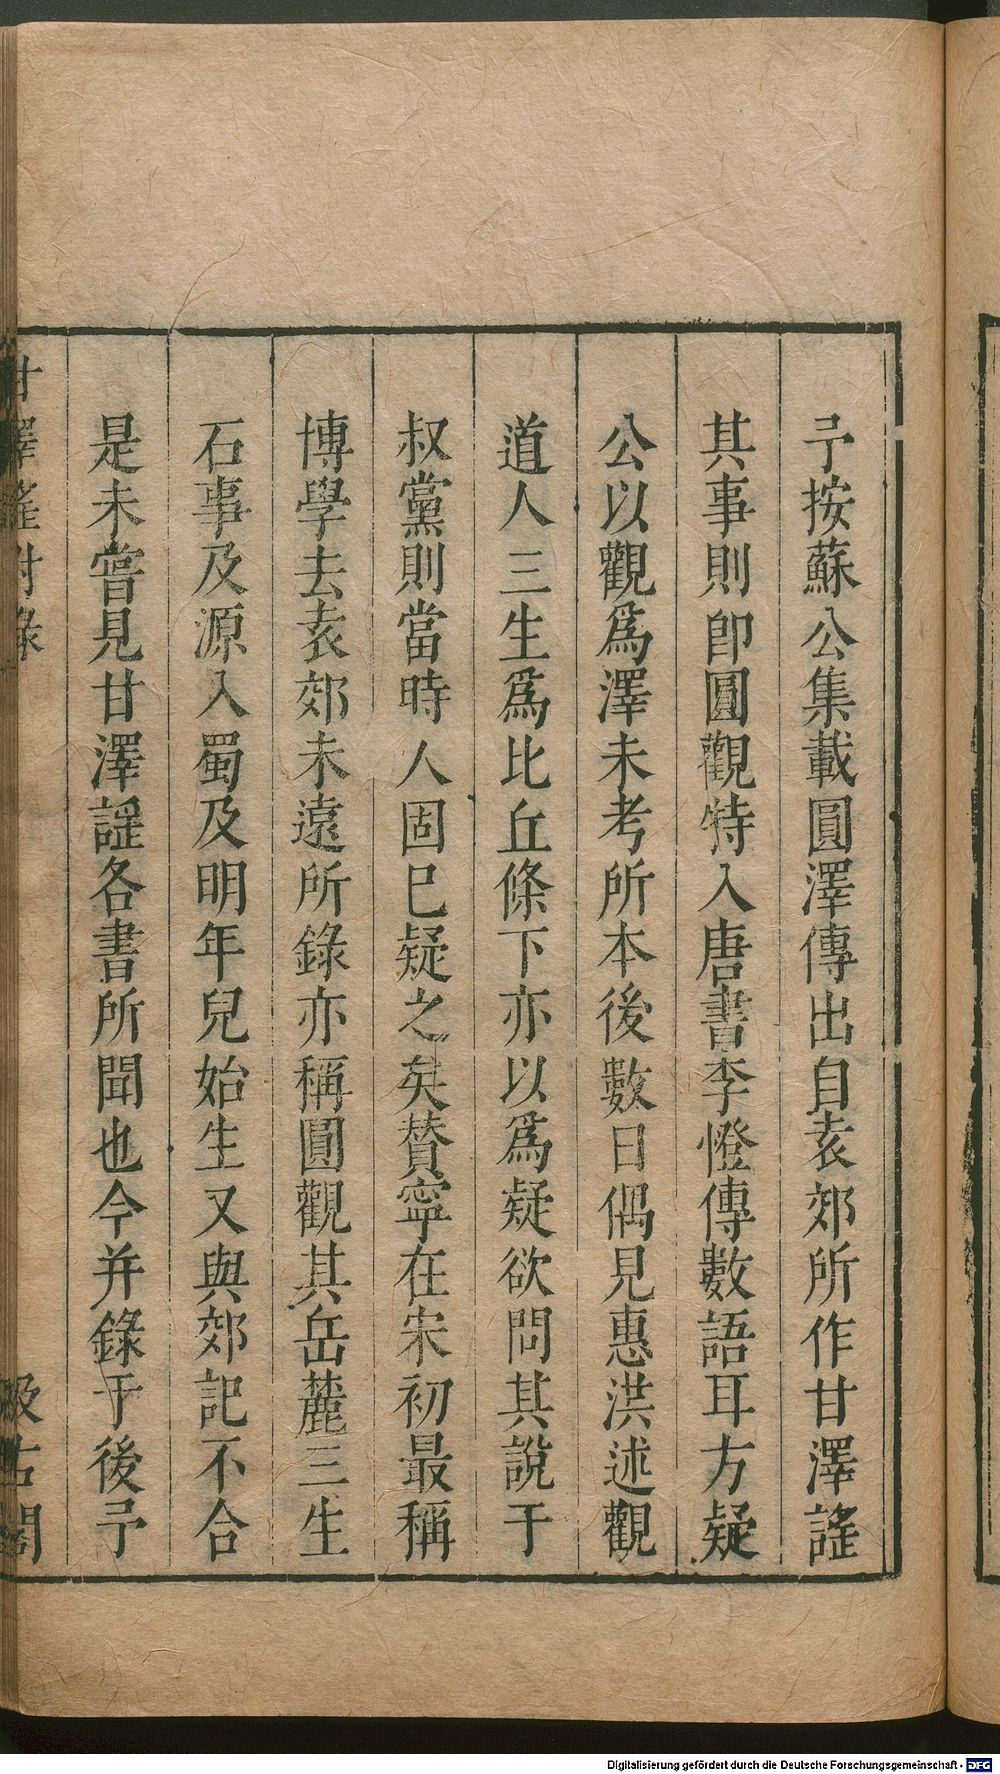 予按蘇公集載圓澤傳出自袁郊所作甘澤謡
其事則即圓觀特入唐書李憕傳數語耳方疑
公以觀爲澤未考所本後數日偶見惠洪述觀
道人三生爲比丘條下亦以爲疑欲問其說于
叔黨則當時人固已疑之矣賛寧在宋初最稱
博學去袁郊未遠所錄亦稱圓觀其岳麓三生
石事及源入蜀及明年兒始生又與郊記不合
是未嘗見甘澤謡各書所聞也今并錄于後予
甘澤謡附錄
汲古閣
Digitalisierung gefördert durch die Deutsche Forschungsgemeinschaft - DFG